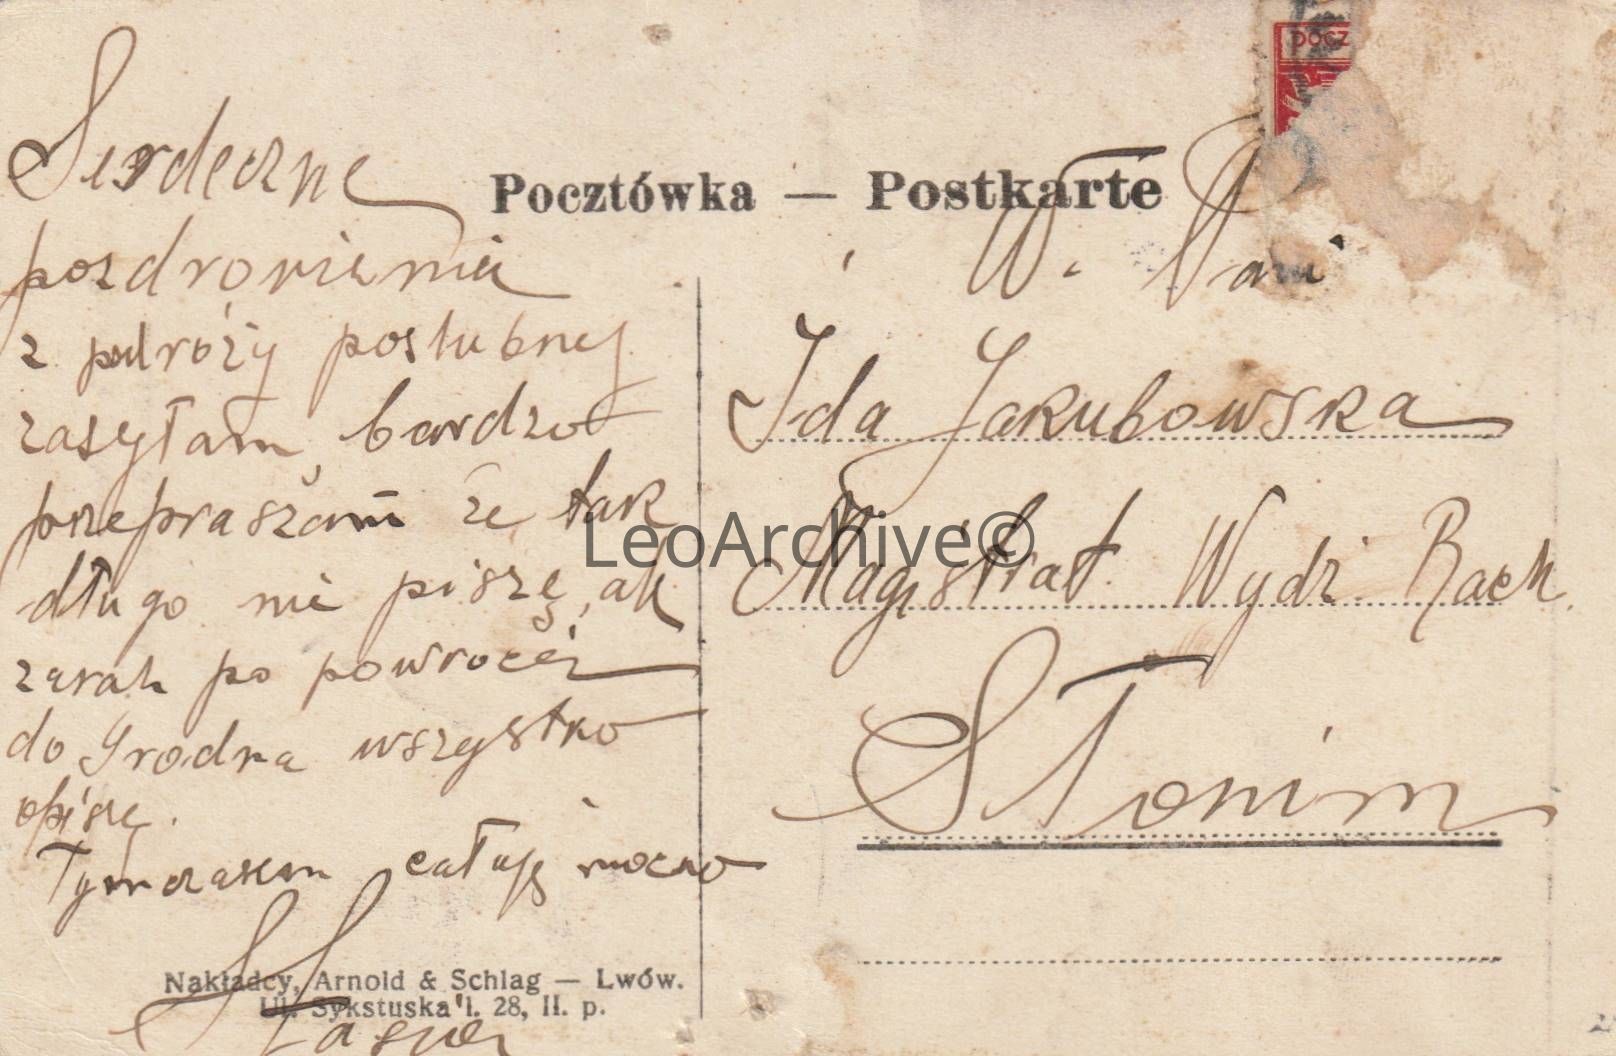 Serdeczne
pozdrowienia
z podróży poślubnej
zasyłam, bardzo
przepraszam że tak
długo nie piszę, ale
zaraz po powrocie
do Grodna wszystko
opiszę.
Tymczasem całuję mocno
Nakładcy, Arnold & Schlag — Lwów.
Ul. Sykstuska l. 28, II. p.
Pocztówka — Postkarte
POCZ
W. Pani
Ida Jakubowska
Magistrat Wydz. Rach.
Słonim
LeoArchive©